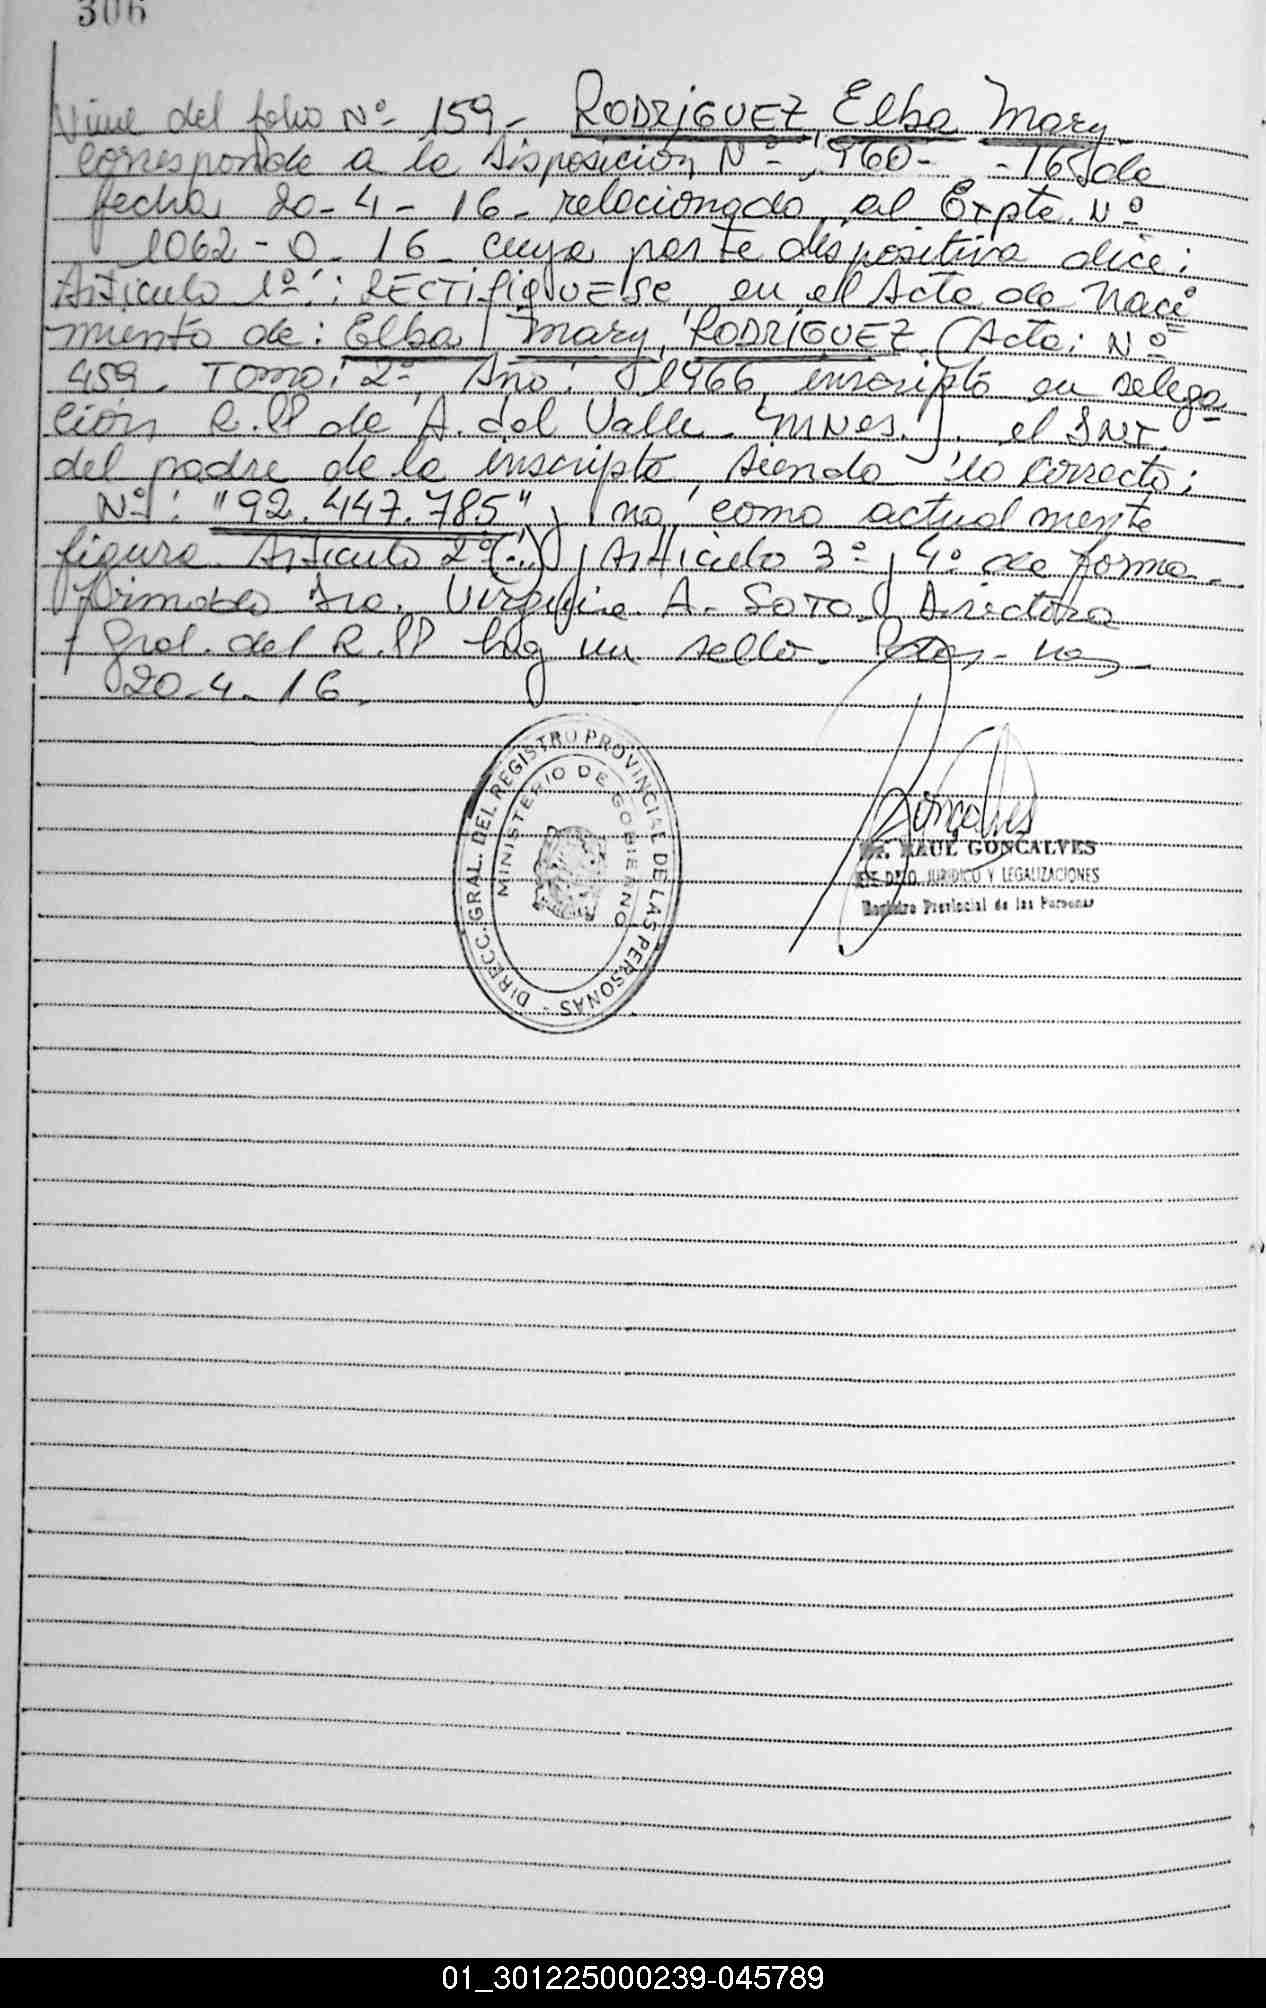 306
Viene del folio Nº- 159- RODRIGUEZ, Elba Mary
Corresponde a la Disposición Nº- 960- -16, de
fecha 20-4-16- relacionado al Expte. Nº
1062-0-16- cuya parte dispositiva dice:
Articulo 1º: RECTIFIQUESE en el Acta de Naci
miento de: Elba Mary RODRIGUEZ (Acta: Nº
459. Tomo: 2º, Año: 1966, inscripto en Delega
ción R.PP de A. del Valle- MNes.). el DNI.
del padre de la inscripta, siendo lo correcto:
Nº: "92.447.785" y no como actualmente
figura. Articulo 2º (..) Articulo 3º y 4º de forma.
Firmado Dra. Virginia A- SOTO Directora
Gral. del R.PP hay un sello. Pdas-
20-4-16
DIRECC. GRAL. DEL REGISTRO PROVINCIAL DE LAS PERSONAS -
MINISTERIO DE GOBIERNO
Goncalves
Dr. RAUL GONCALVES
JEFE DPTO. JURIDICO Y LEGALIZACIONES
Registro Provincial de las Personas
01_301225000239-045789